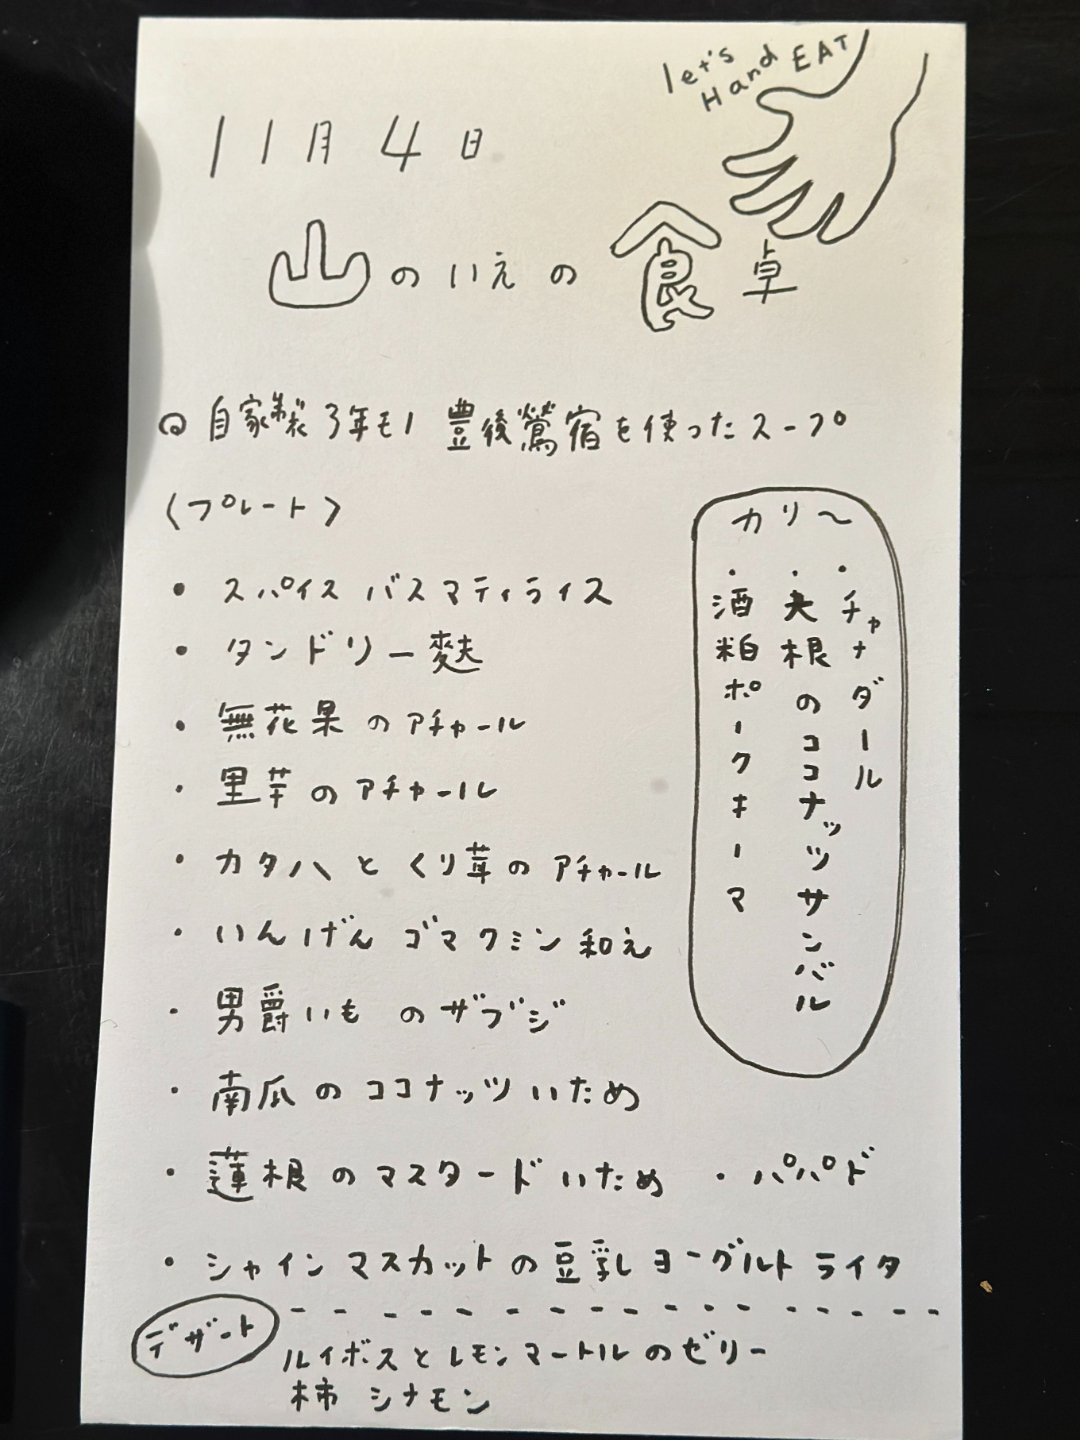 let's
Hand EAT
11月4日
山のいえの食卓
自家製3年モノ 豊後鶯宿を使ったスープ
〈プレート〉
・スパイス バスマティライス
・タンドリー麩
・無花果のアチャール
・里芋のアチャール
・カタハとくり茸のアチャール
・いんげん ゴマクミン和え
・男爵いものサブジ
・南瓜のココナッツいため
・蓮根のマスタードいため ・パパド
・シャインマスカットの豆乳ヨーグルトライタ
カリ〜
・チャナダール
・大根のココナッツサンバル
・酒粕ポークキーマ
デザート
ルイボスとレモンマートルのゼリー
柿 シナモン